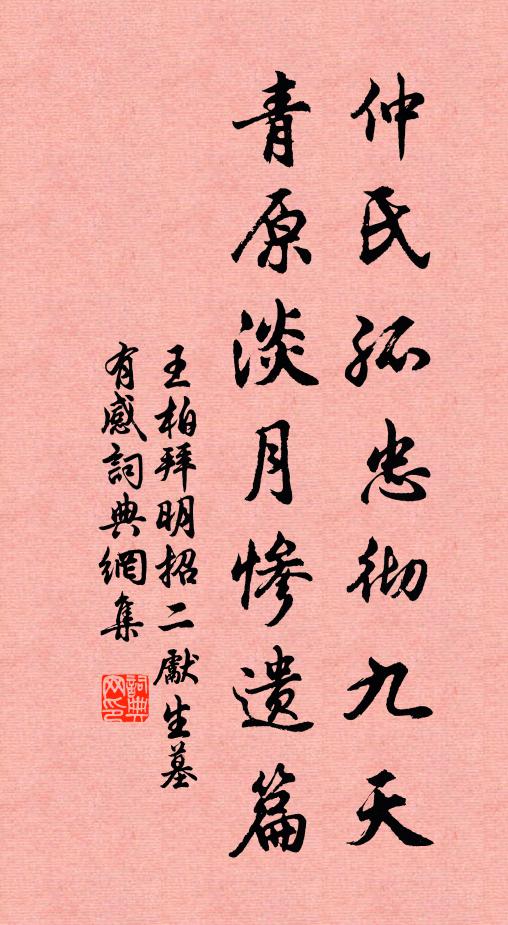 仲氏孤忠彻九天
青原淡月惨遗篇
王柏拜明招二獻生墓
有感詞典網集
詞典网印